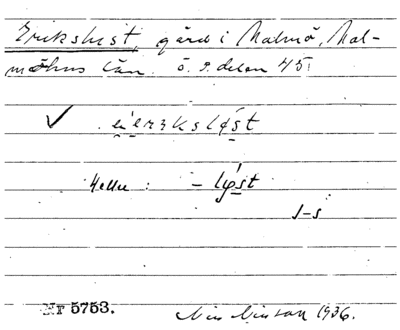 Erikslust, gård i Malmö, Mal-
möhus län. ö. s. delen 45.
✓ eierikslø̨st
Heller: – lǿ̨st
J-s
Nr 5753.
Nils Nilsson 1936.